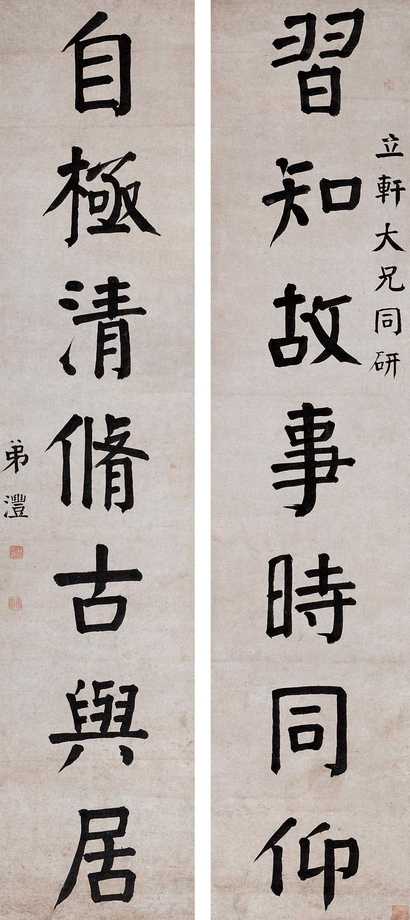 立軒大兄同研
習知故事時同仰
自極清脩古與居
弟灃